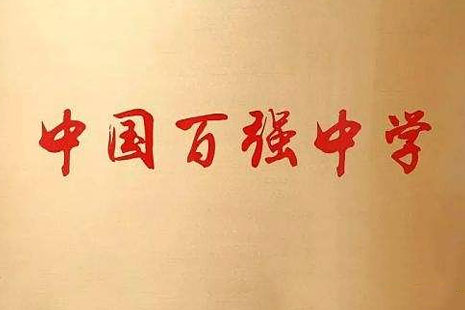 中国百强中学